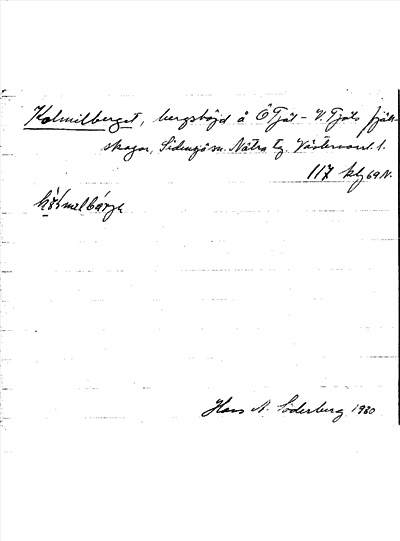 Kolmilberget, bergshöjd å Ö Tjäl - V. Tjäls fjäll-
skogar, Sidensjö sn. Nätra tg. Västernorrl. l.
117 69 N.
Hans A. Söderberg 1930